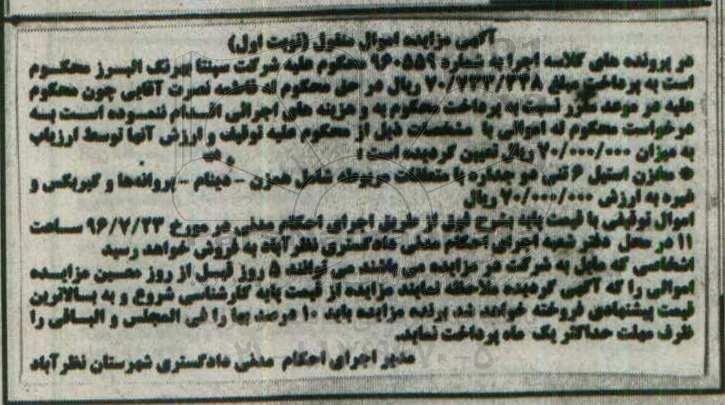 آگهی مزایده اموال منقول (نوبت اول)
در پرونده های کلاسه اجرا به شماره ۹۶۰۵۵۹ محکوم علیه شرکت سینتا بیرنگ البرز محکوم
است به پرداخت مبلغ ۷۰/۲۳۳/۳۲۸ ریال در حق محکوم له فاطمه نصرت آقایی چون محکوم
علیه در موعد مقرر نسبت به پرداخت محکوم به و هزینه های اجرائی اقدام ننموده است به
درخواست محکوم له اموالی با مشخصات ذیل از محکوم علیه توقیف و ارزش آنها توسط ارزیاب
به میزان ۷۰/۰۰۰/۰۰۰ ریال تعیین گردیده است :
* مخزن استیل ۶ تنی دو جداره با متعلقات مربوطه شامل همزن - دینام - پروانهها و گیربکس و
غیره به ارزش ۷۰/۰۰۰/۰۰۰ ریال
اموال توقیفی با قیمت پایه بشرح فوق از طریق اجرای احکام مدنی در مورخ ۹۶/۷/۲۳ ساعت
۱۱ در محل دفتر شعبه اجرای احکام مدنی دادگستری نظرآباد به فروش خواهد رسید
اشخاصی که مایل به شرکت در مزایده می باشند می توانند ۵ روز قبل از روز معین مزایده
اموالی را که آگهی گردیده ملاحظه نمایند مزایده از قیمت پایه کارشناسی شروع و به بالاترین
قیمت پیشنهادی فروخته خواهد شد برنده مزایده باید ۱۰ درصد بها را فی المجلس و الباقی را
ظرف مهلت حداکثر یک ماه پرداخت نماید.
مدیر اجرای احکام مدنی دادگستری شهرستان نظرآباد